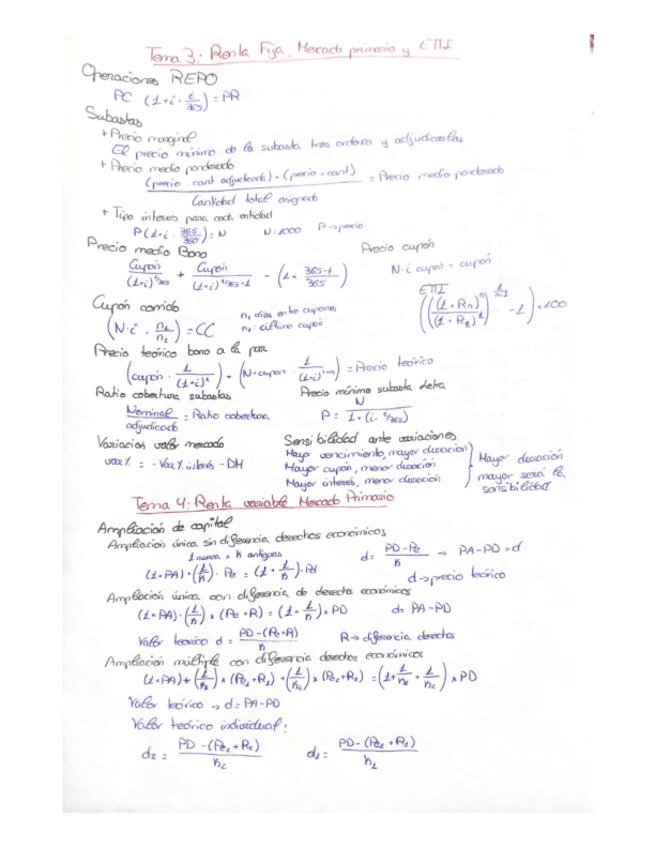 Tema 3: Renta Fija. Mercado primario y ETTI
Operaciones REPO
PC · (1+i · t/365) = PR
Subastas
+ Precio marginal
El precio mínimo de la subasta tras ordenar y adjudicarlas
+ Precio medio ponderado
(precio · cant adjudicada) + (precio · cant) / Cantidad total asignada = Precio medio ponderado
+ Tipo interés para cada entidad
P(1+i · 365/360) = N N=1000 P→precio
Precio medio Bono Precio cupón
Cupón/(1+i)^t/365 + Cupón/(1+i)^t/365+1 - (1 · 365-t/365) N·i cupón = cupón
Cupón corrido ETTI
(N·i · n₁/n₂) = CC
Precio teórico bono a la par
(cupón · 1/(1+i)^t) + (N+cupón · 1/(1+i)) = Precio teórico
Ratio cobertura subastas Precio mínimo subasta letra
Nominal/adjudicado = Ratio cobertura P = N/1+(i · t/365)
Variación valor mercado Sensibilidad ante variaciones
var% = -Var% interés · DM
Mayor vencimiento, mayor duración
Mayor cupón, menor duración
Mayor interés, menor duración
Mayor duración mayor será la sensibilidad
Tema 4: Renta variable Mercado Primario
Ampliación de capital
Ampliación única sin diferencia derechos económicos
1 nueva x n antiguas
(1·PA)+(1/n)·Pe = (1+1/n)·Pd d= PD-Pe/n → PA-PD=d
d→precio teórico
Ampliación única con diferencia de derechos económicos
(1·PA)+(1/n)x(Pe+R) = (1+1/n)xPD d= PA-PD
Valor teórico d = PD-(Pe+R)/n R→diferencia derechos
Ampliación múltiple con diferencia derechos económicos
(1·PA)+(1/n₁)x(Pe₁+R₁)+(1/n₂)x(Pe₂+R₂)=(1+1/n₁+1/n₂)xPD
Valor teórico → d=PA-PD
Valor teórico individual:
d₂ = PD-(Pe₂+R₂)/n₂ d₁ = PD-(Pe₁+R₁)/n₁